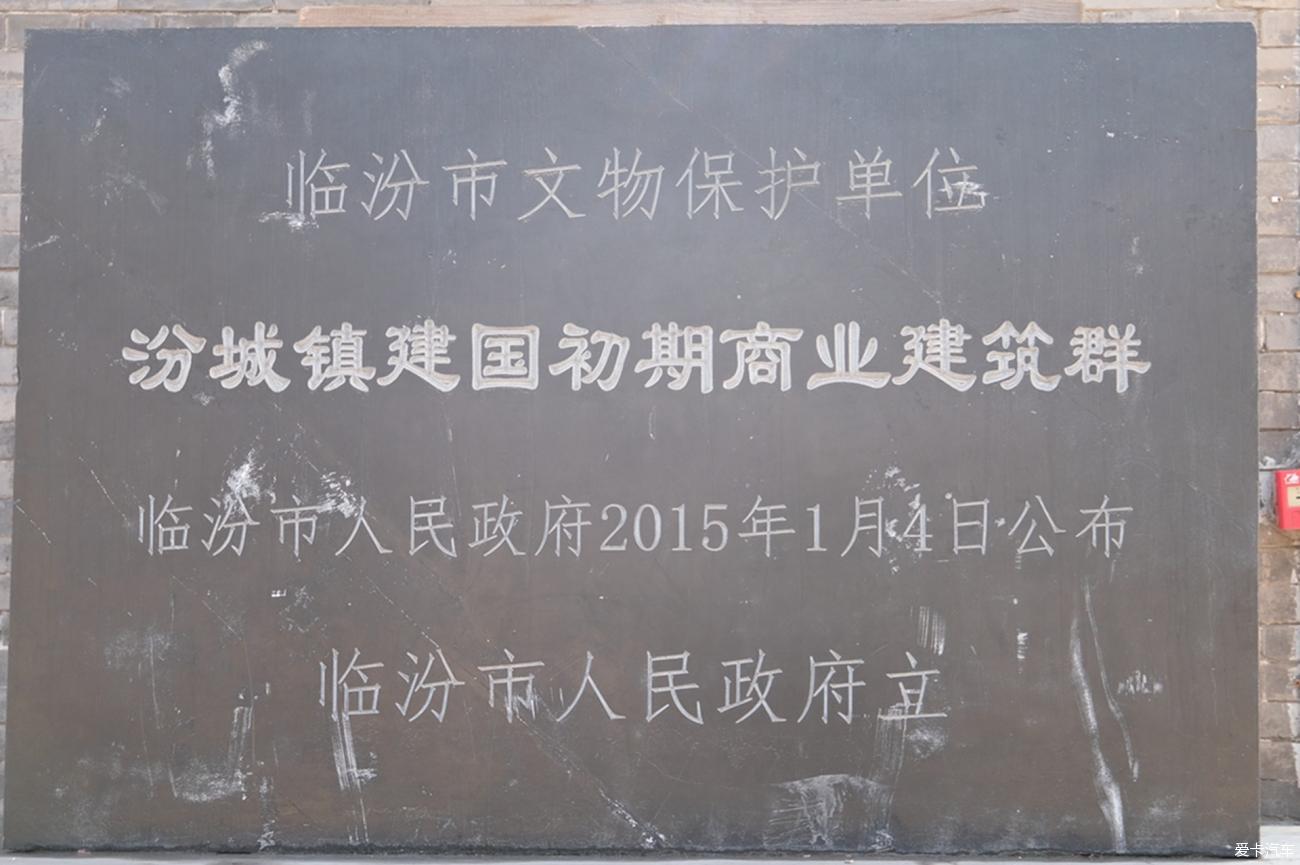 临汾市文物保护单位
汾城镇建国初期商业建筑群
临汾市人民政府2015年1月4日公布
临汾市人民政府立
爱卡汽车